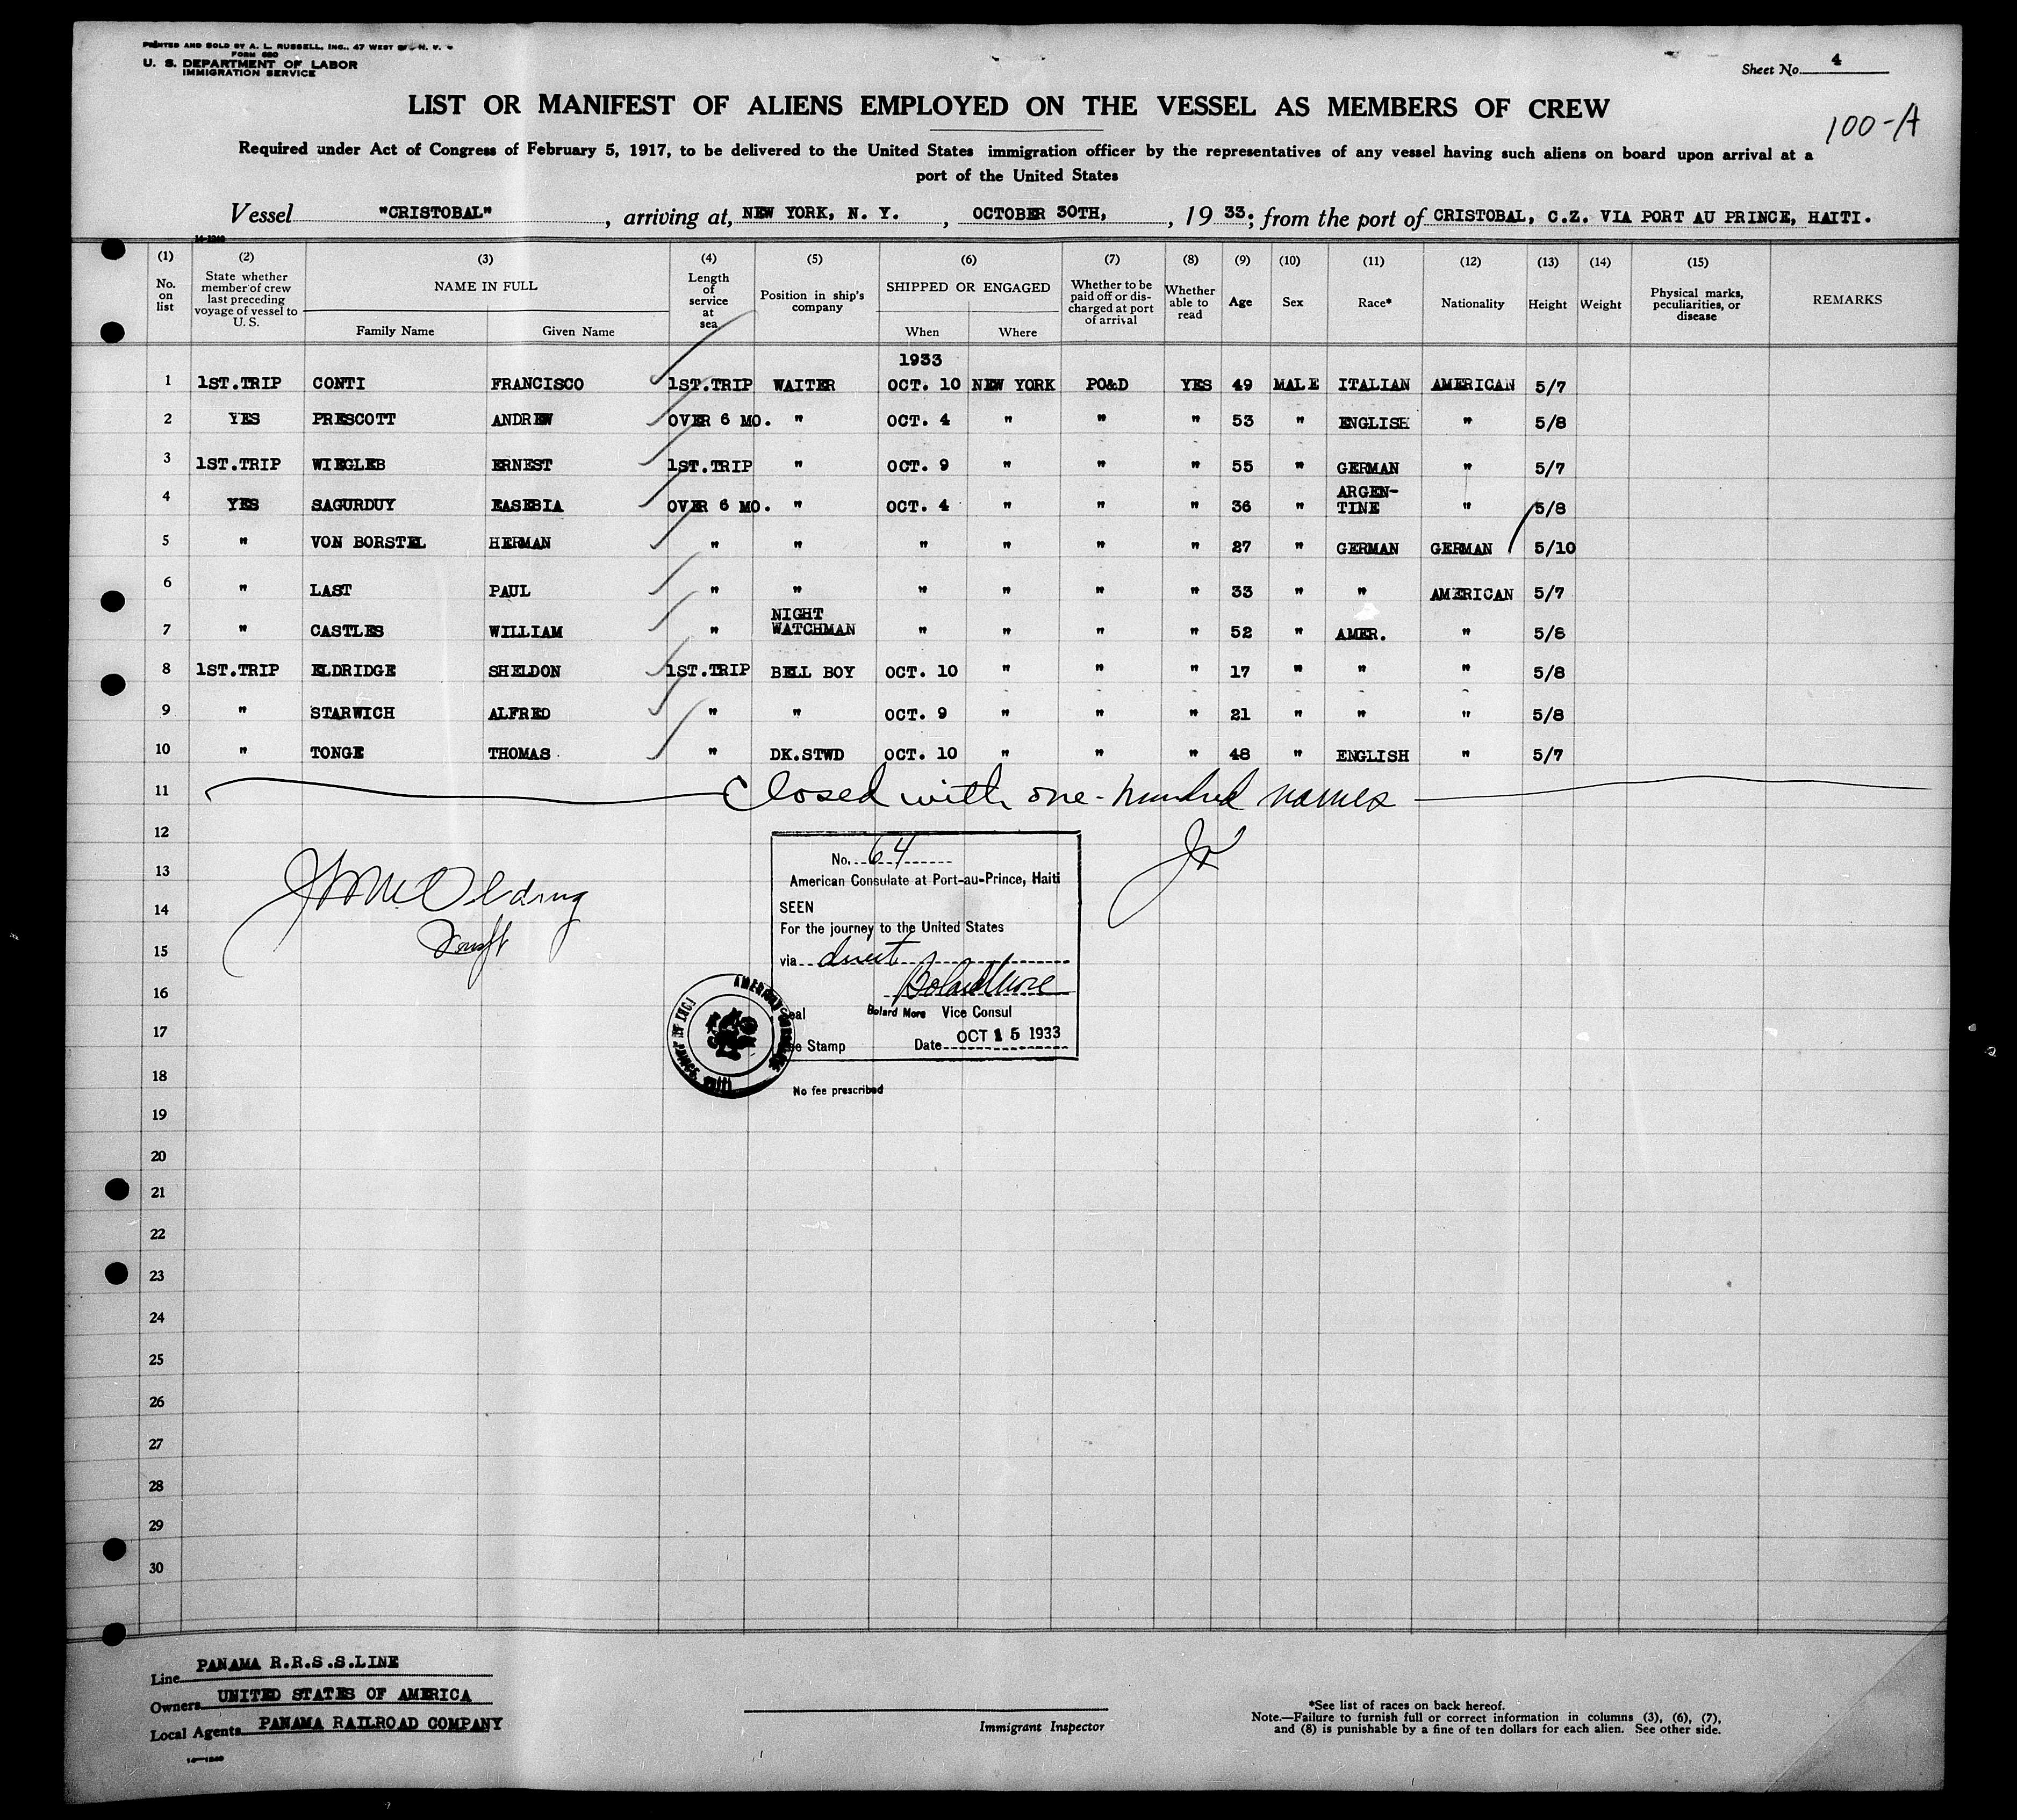 PRINTED AND SOLD BY A. L. RUSSELL, INC., 47 WEST ST., N. Y.
FORM 680
U. S. DEPARTMENT OF LABOR
IMMIGRATION SERVICE
Sheet No. 4
LIST OR MANIFEST OF ALIENS EMPLOYED ON THE VESSEL AS MEMBERS OF CREW
100-A
Required under Act of Congress of February 5, 1917, to be delivered to the United States immigration officer by the representatives of any vessel having such aliens on board upon arrival at a
port of the United States
Vessel "CRISTOBAL", arriving at, NEW YORK, N. Y., OCTOBER 30TH, , 19 33; from the port of CRISTOBAL, C.Z. VIA PORT AU PRINCE, HAITI.
14-1240
(1) (2) (3) (4) (5) (6) (7) (8) (9) (10) (11) (12) (13) (14) (15)
No. on list
State whether member of crew last preceding voyage of vessel to U. S.
NAME IN FULL
Family Name
Given Name
Length of service at sea
Position in ship's company
SHIPPED OR ENGAGED
When
Where
Whether to be paid off or discharged at port of arrival
Whether able to read
Age
Sex
Race*
Nationality
Height
Weight
Physical marks, peculiarities, or disease
REMARKS
1933
1 1ST.TRIP CONTI FRANCISCO 1ST.TRIP WAITER OCT. 10 NEW YORK PO&D YES 49 MALE ITALIAN AMERICAN 5/7
2 YES PRESCOTT ANDREW OVER 6 MO. " OCT. 4 " " " 53 " ENGLISH " 5/8
3 1ST.TRIP WIEGLEB ERNEST 1ST.TRIP " OCT. 9 " " " 55 " GERMAN " 5/7
4 YES SAGURDUY EASEBIA OVER 6 MO. " OCT. 4 " " " 36 " ARGEN-TINE " 5/8
5 " VON BORSTEL HERMAN " " " " " " 27 " GERMAN GERMAN 5/10
6 " LAST PAUL " " " " " " 33 " " AMERICAN 5/7
7 " CASTLES WILLIAM " NIGHT WATCHMAN " " " " 52 " AMER. " 5/8
8 1ST.TRIP ELDRIDGE SHELDON 1ST.TRIP BELL BOY OCT. 10 " " " 17 " " " 5/8
9 " STARWICH ALFRED " " OCT. 9 " " " 21 " " " 5/8
10 " TONGE THOMAS " DK.STWD OCT. 10 " " " 48 " ENGLISH " 5/7
11 Closed with one-hundred names
12
13
14
15
16
17
18
19
20
21
22
23
24
25
26
27
28
29
30
No. 64
American Consulate at Port-au-Prince, Haiti
SEEN
For the journey to the United States
via direct
Bolard More
Bolard More Vice Consul
Fee Stamp Date OCT 15 1933
No fee prescribed
Line PANAMA R.R.S.S.LINE
Owners UNITED STATES OF AMERICA
Local Agents PANAMA RAILROAD COMPANY
14-1240
Immigrant Inspector
*See list of races on back hereof.
Note.—Failure to furnish full or correct information in columns (3), (6), (7),
and (8) is punishable by a fine of ten dollars for each alien. See other side.